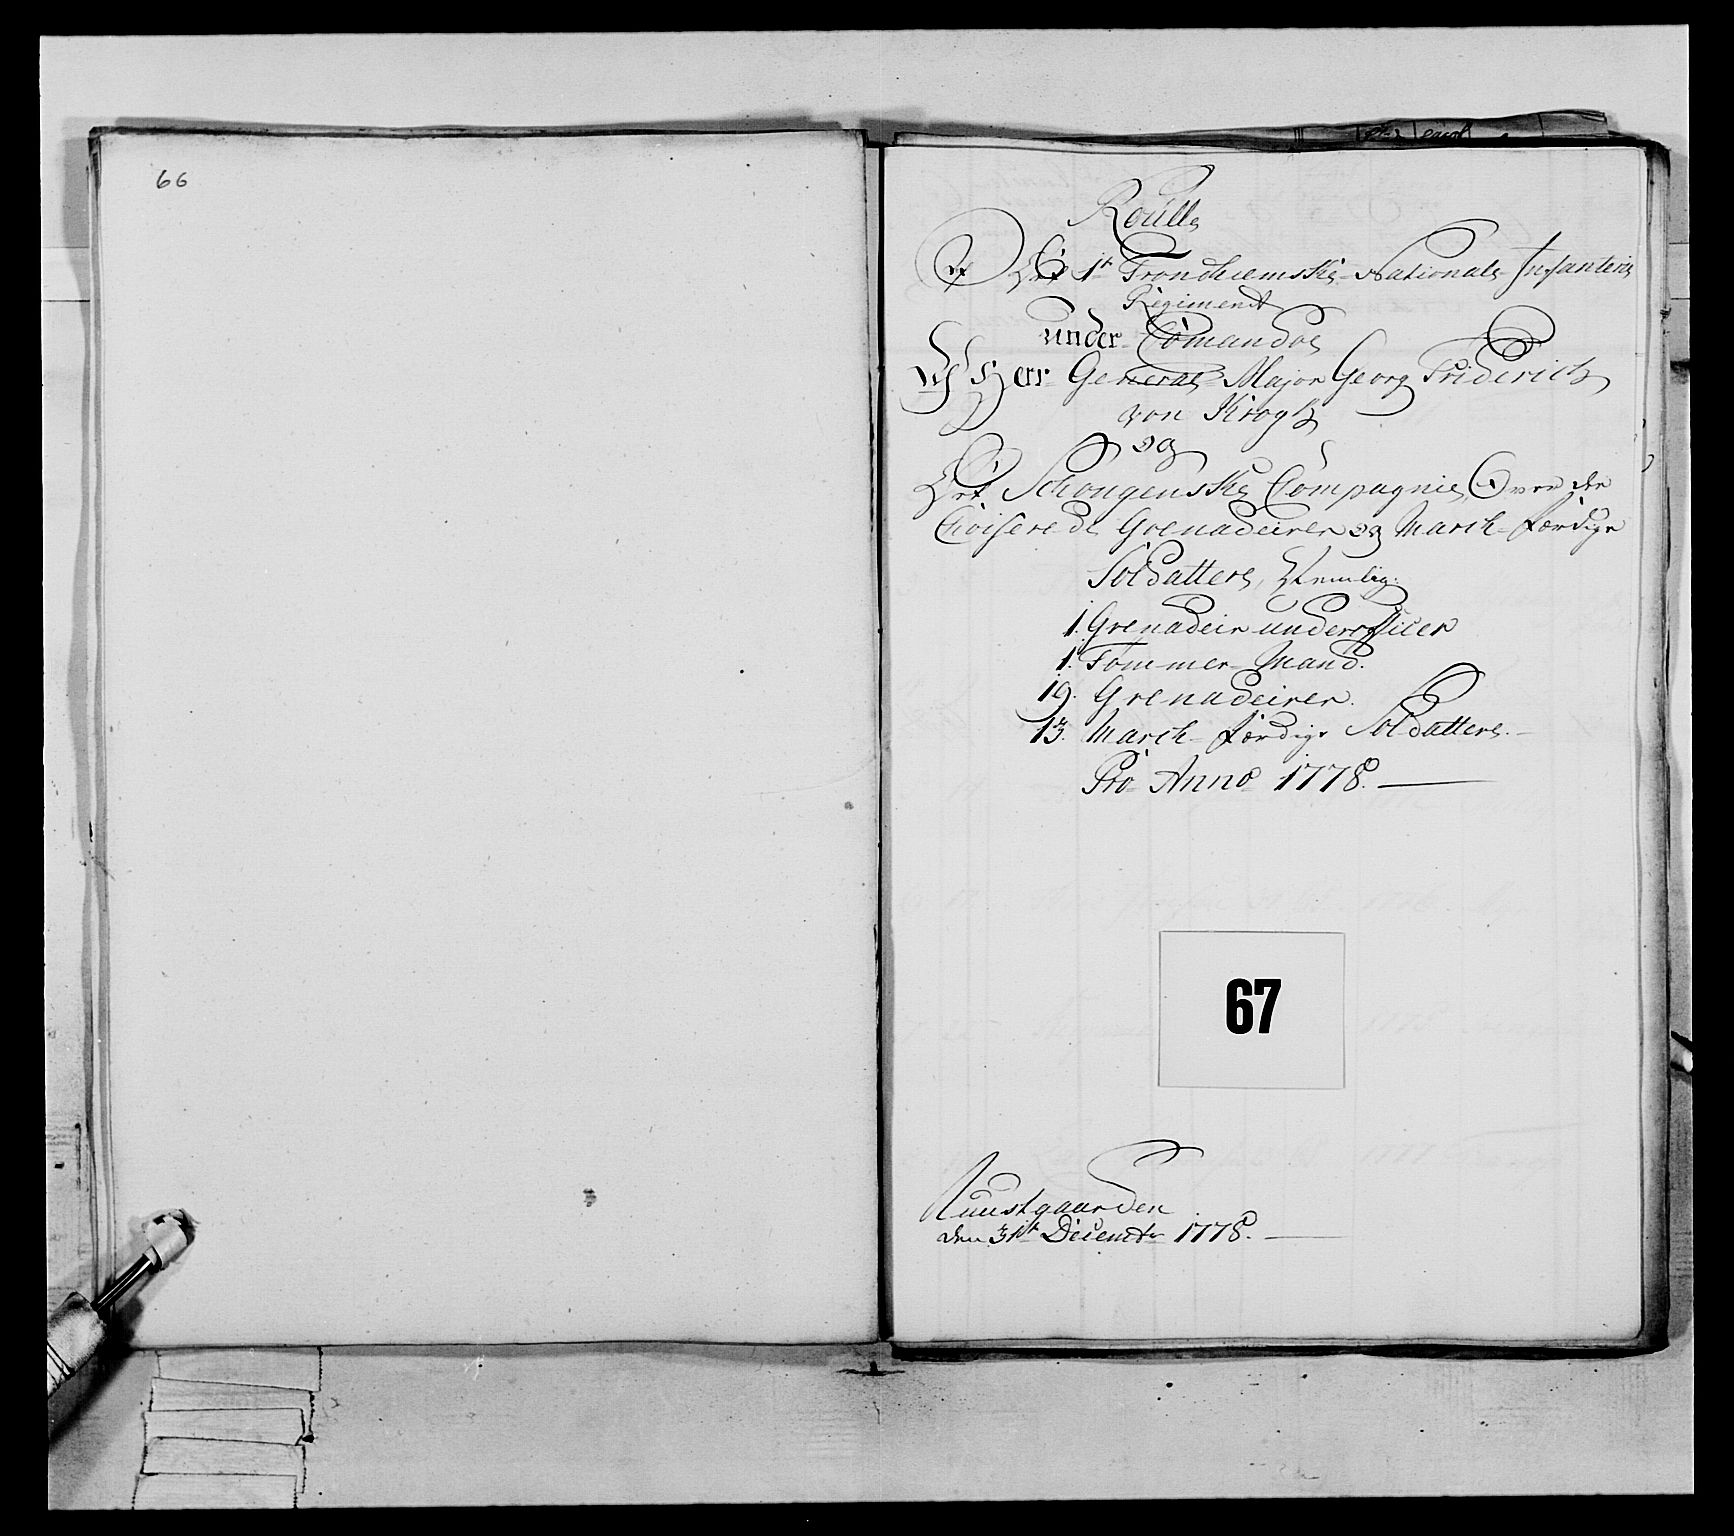 66
Roulle
Af Det 1te Trondhiemske Nationale Infanterie
Regiment
under Comandoe
Af Herr General Major Georg Friderich
von Krogh
og
Det Schougenske Compagnie, Over der
Choiserede Grenadeirer og March færdige
Soldattere, Nemlig:
1. Grenadeir underofficer
1. Tømmer Mand.
19. Grenadeirer.
13. March færdige Soldattere.
Pro Anno 1778.
67
Ruustgaarden
den 31te Decembr 1778.